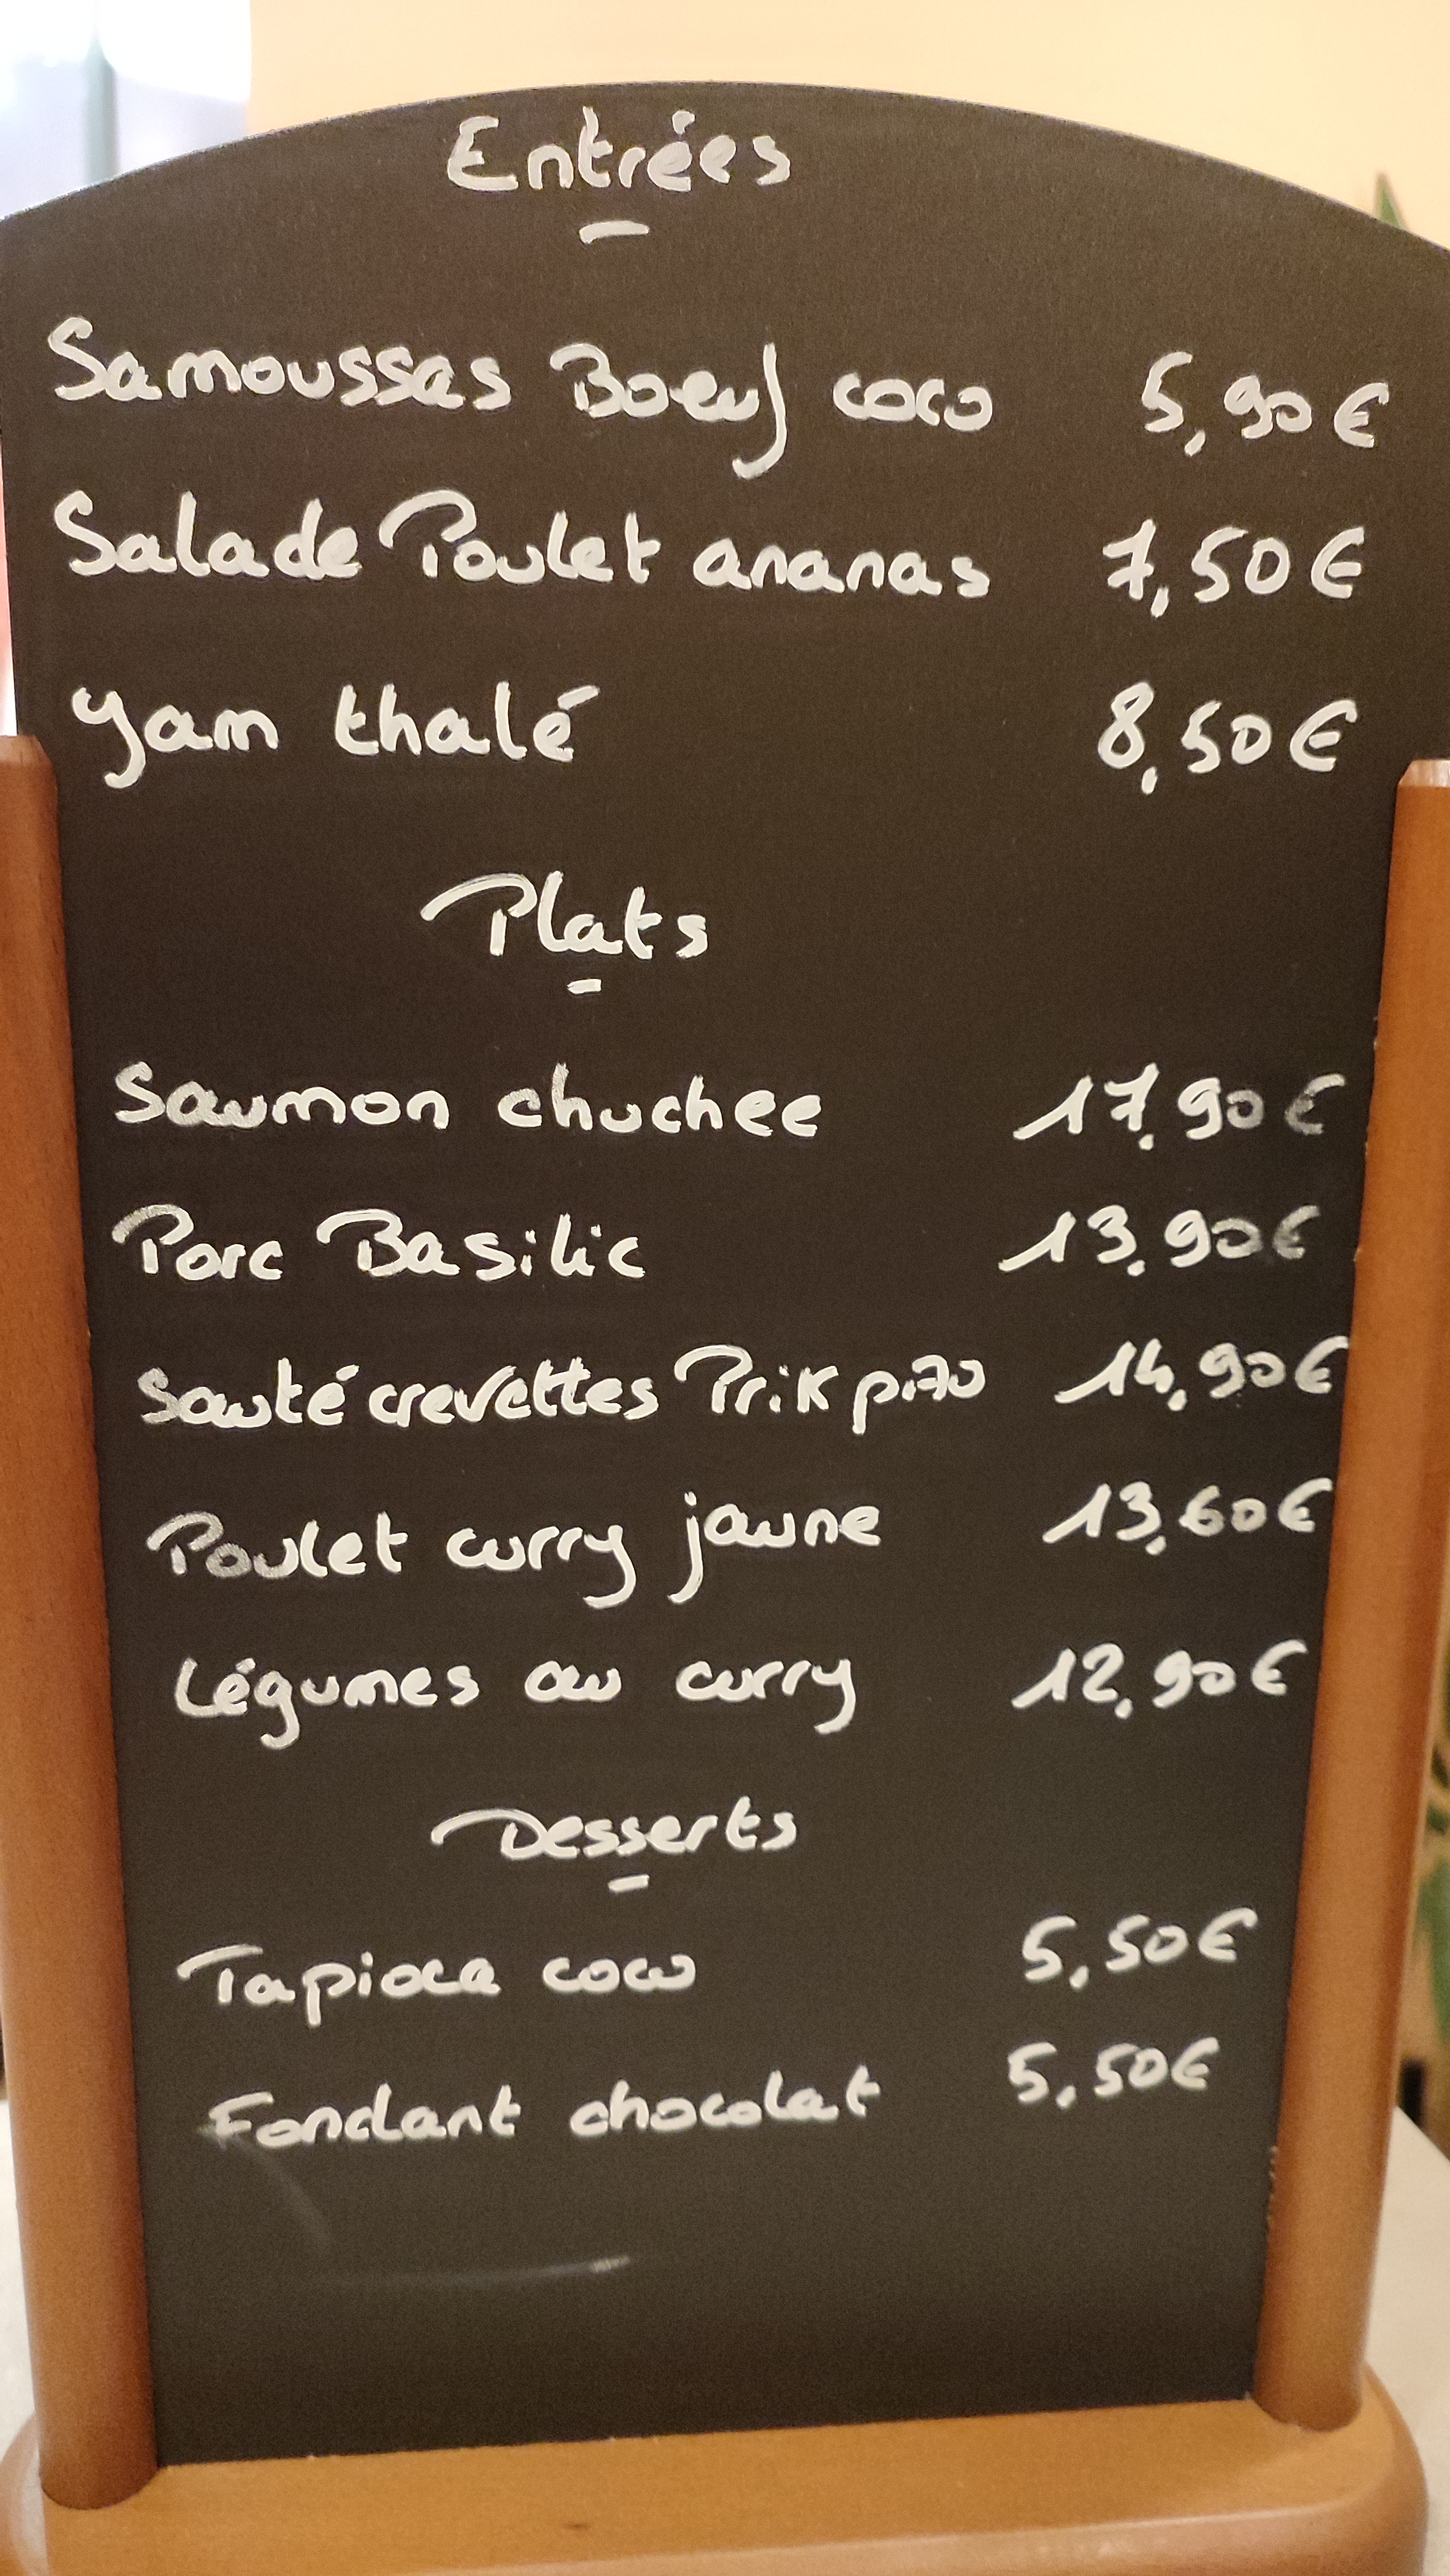 Entrées
Samoussas Boeuf coco 5,90€
Salade Poulet ananas 7,50€
Yam thalé 8,50€
Plats
Saumon chuchee 17,90€
Porc Basilic 13,90€
Sauté crevettes Prik 14,90€
Poulet curry jaune 13,60€
Légumes au curry 12,90€
Desserts
Tapioca coco 5,50€
Fondant chocolat 5,50€